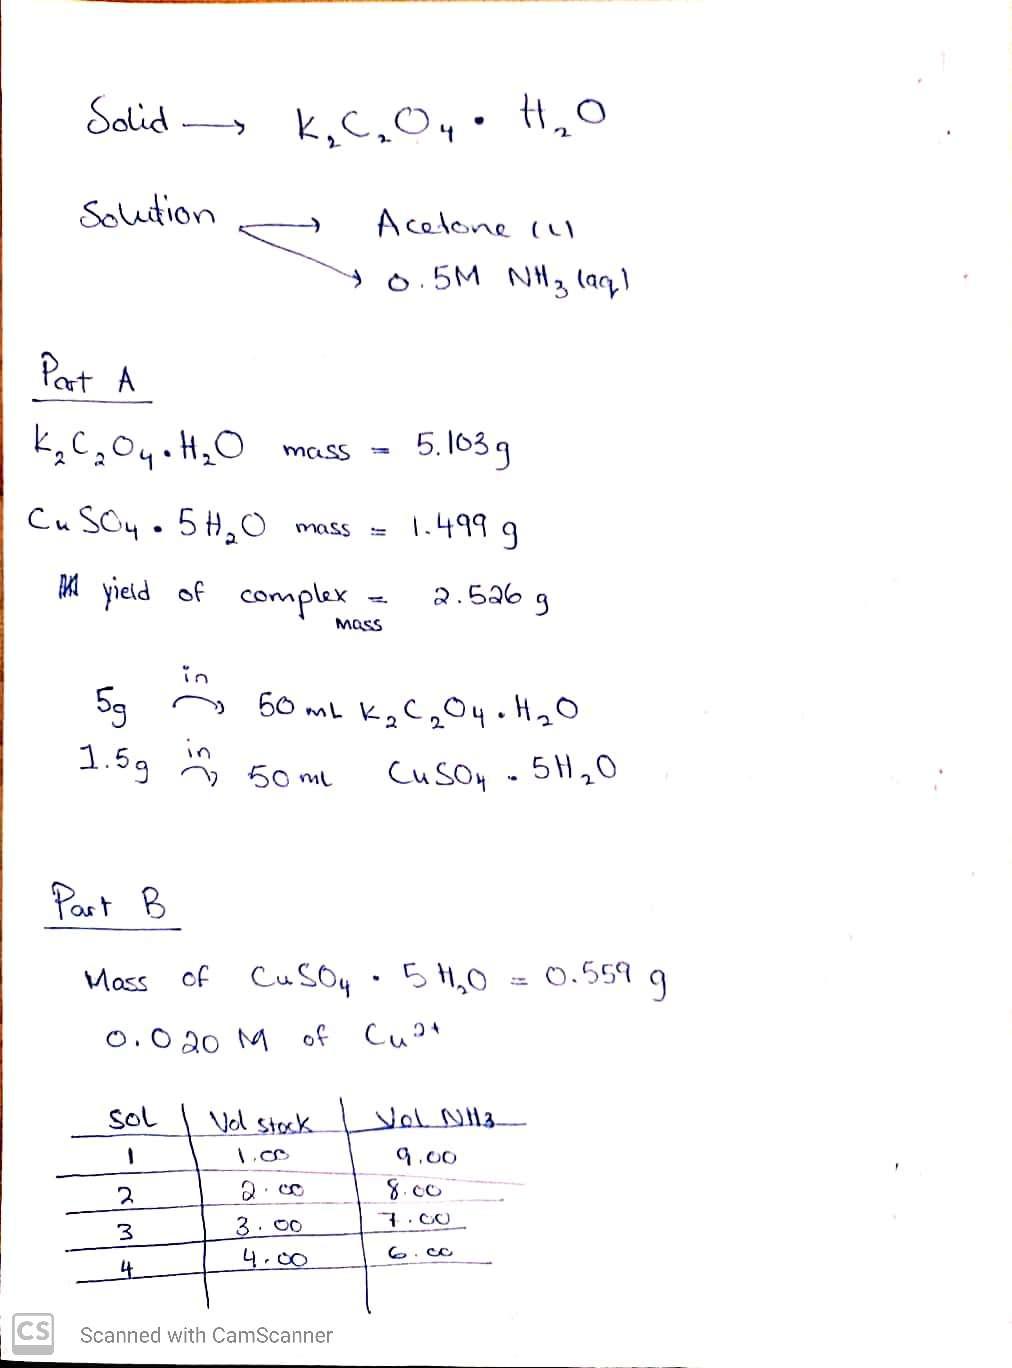 Solid → K₂C₂O₄ • H₂O
Solution → Acetone (l)
→ 0.5M NH₃ (aq)
Part A
K₂C₂O₄ • H₂O mass = 5.103 g
CuSO₄ • 5H₂O mass = 1.499 g
yield of complex mass = 2.526 g
5g in → 50 mL K₂C₂O₄ • H₂O
1.5g in → 50 mL CuSO₄ • 5H₂O
Part B
Mass of CuSO₄ • 5H₂O = 0.559 g
0.020 M of Cu²⁺
Sol Vol stock Vol NH₃
1 1.00 9.00
2 2.00 8.00
3 3.00 7.00
4 4.00 6.00
CS Scanned with CamScanner